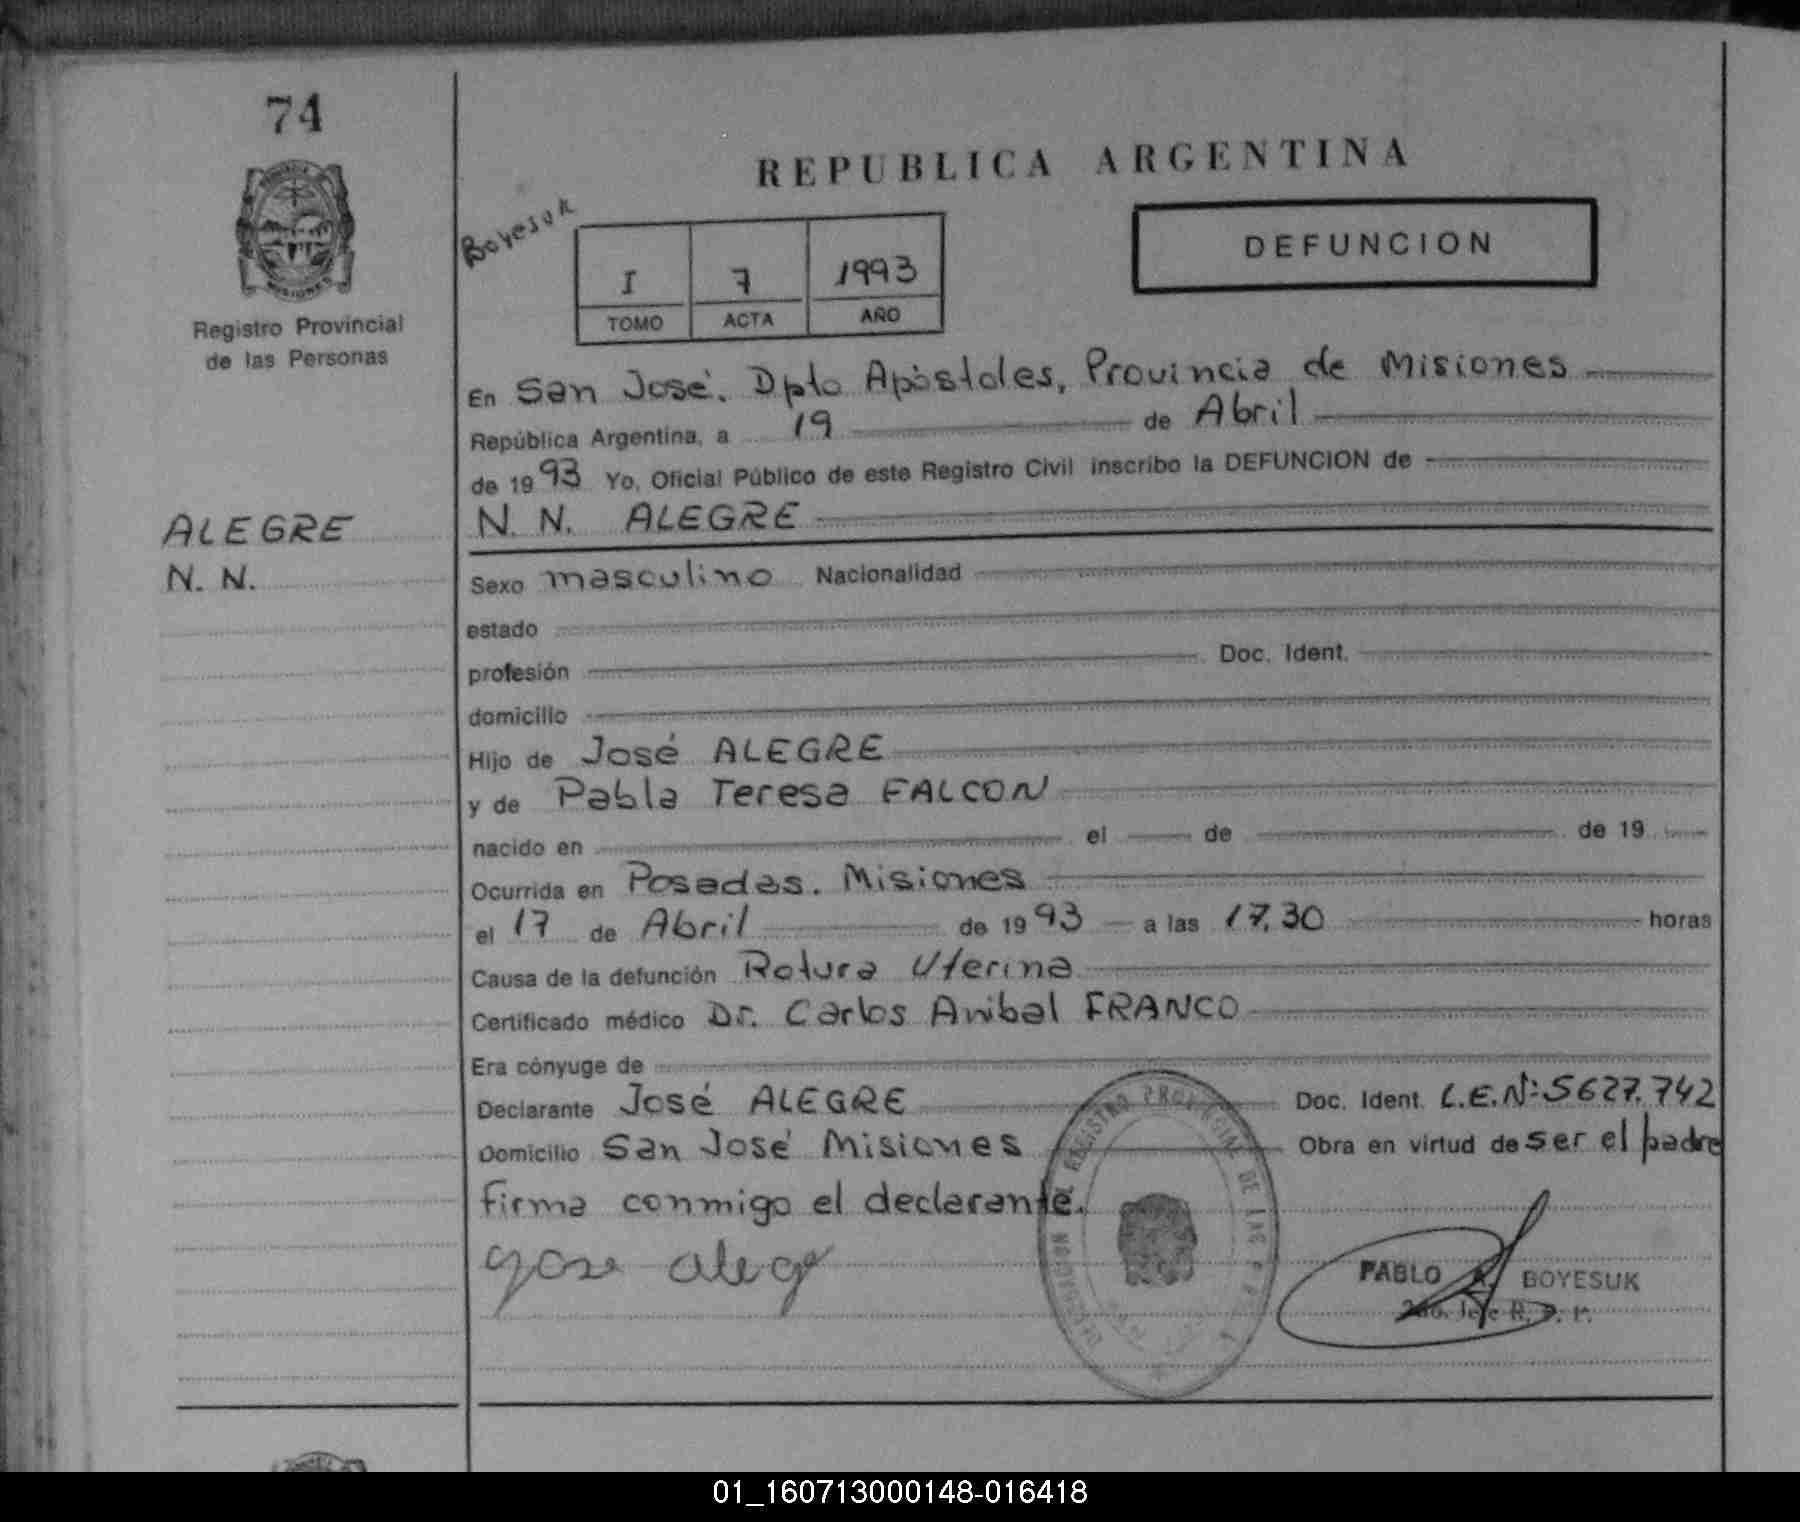 74
MISIONES
Registro Provincial
de las Personas
ALEGRE
N. N.
REPUBLICA ARGENTINA
Boyesuk
I 7 1993
TOMO ACTA AÑO
DEFUNCION
En San José. Dpto Apóstoles, Provincia de Misiones
República Argentina, a 19 de Abril
de 1993 Yo, Oficial Público de este Registro Civil inscribo la DEFUNCION de
N. N. ALEGRE
Sexo masculino Nacionalidad
estado
profesión Doc. Ident.
domicilio
Hijo de José ALEGRE
y de Pabla Teresa FALCON
nacido en el de de 19
Ocurrida en Posadas. Misiones
el 17 de Abril de 1993 a las 17,30 horas
Causa de la defunción Rotura Uterina
Certificado médico Dr. Carlos Anibal FRANCO
Era cónyuge de
Declarante José ALEGRE Doc. Ident. L.E.Nº:5627.742
Domicilio San José Misiones Obra en virtud de ser el padre
firma conmigo el declarante.
REGISTRO PROVINCIAL DE LAS
PABLO A. BOYESUK
2do. Jefe R. P. P.
01_160713000148-016418